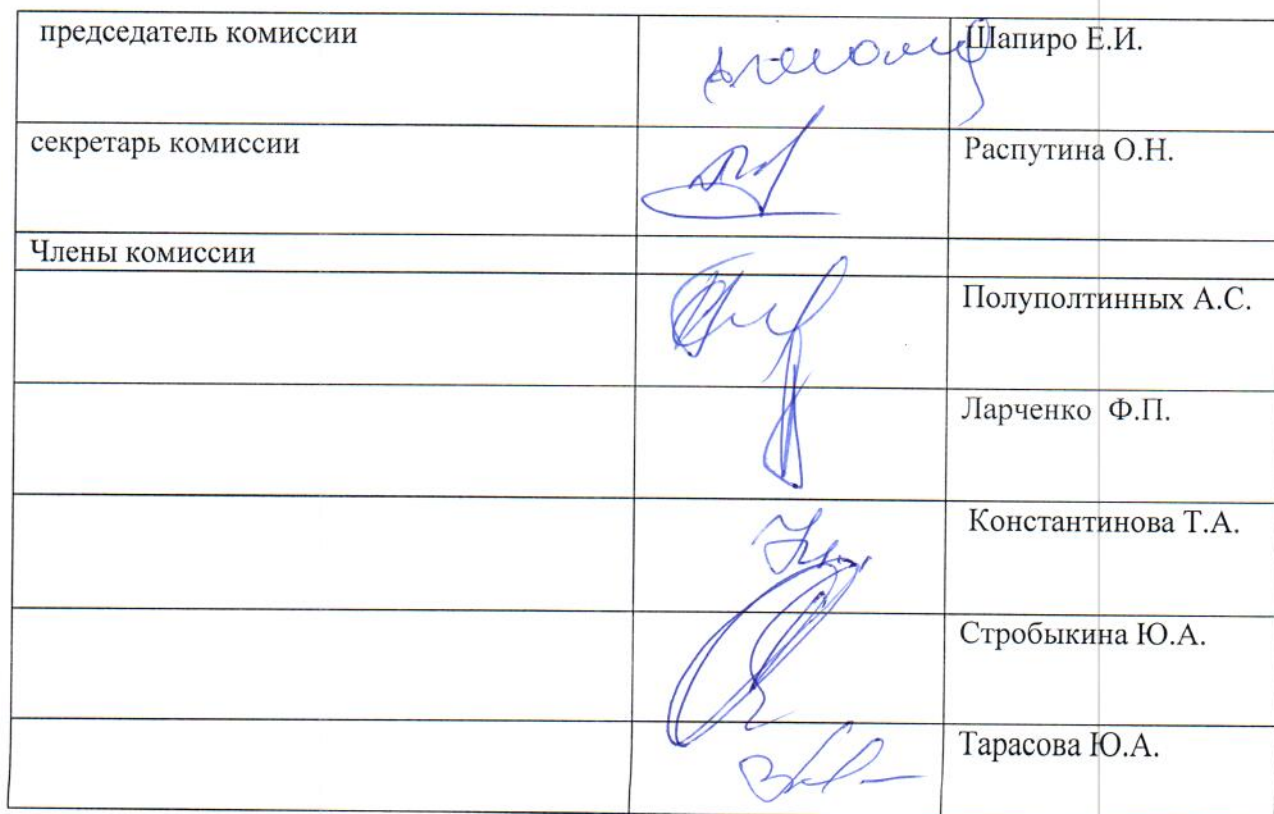 председатель комиссии Шапиро Е.И.
секретарь комиссии Распутина О.Н.
Члены комиссии
Полуполтинных А.С.
Ларченко Ф.П.
Константинова Т.А.
Стробыкина Ю.А.
Тарасова Ю.А.